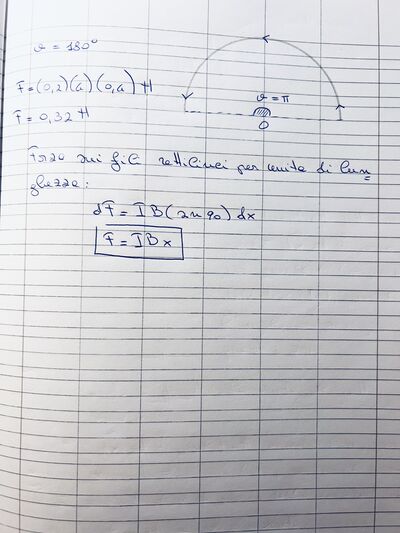 ϑ = 180°
F = (0,2)(4)(0,4) N
F = 0,32 N
ϑ = π
O
Forza sui fili rettilinei per unità di lun=
ghezza:
dF = IB (sin 90) dx
F = IBx